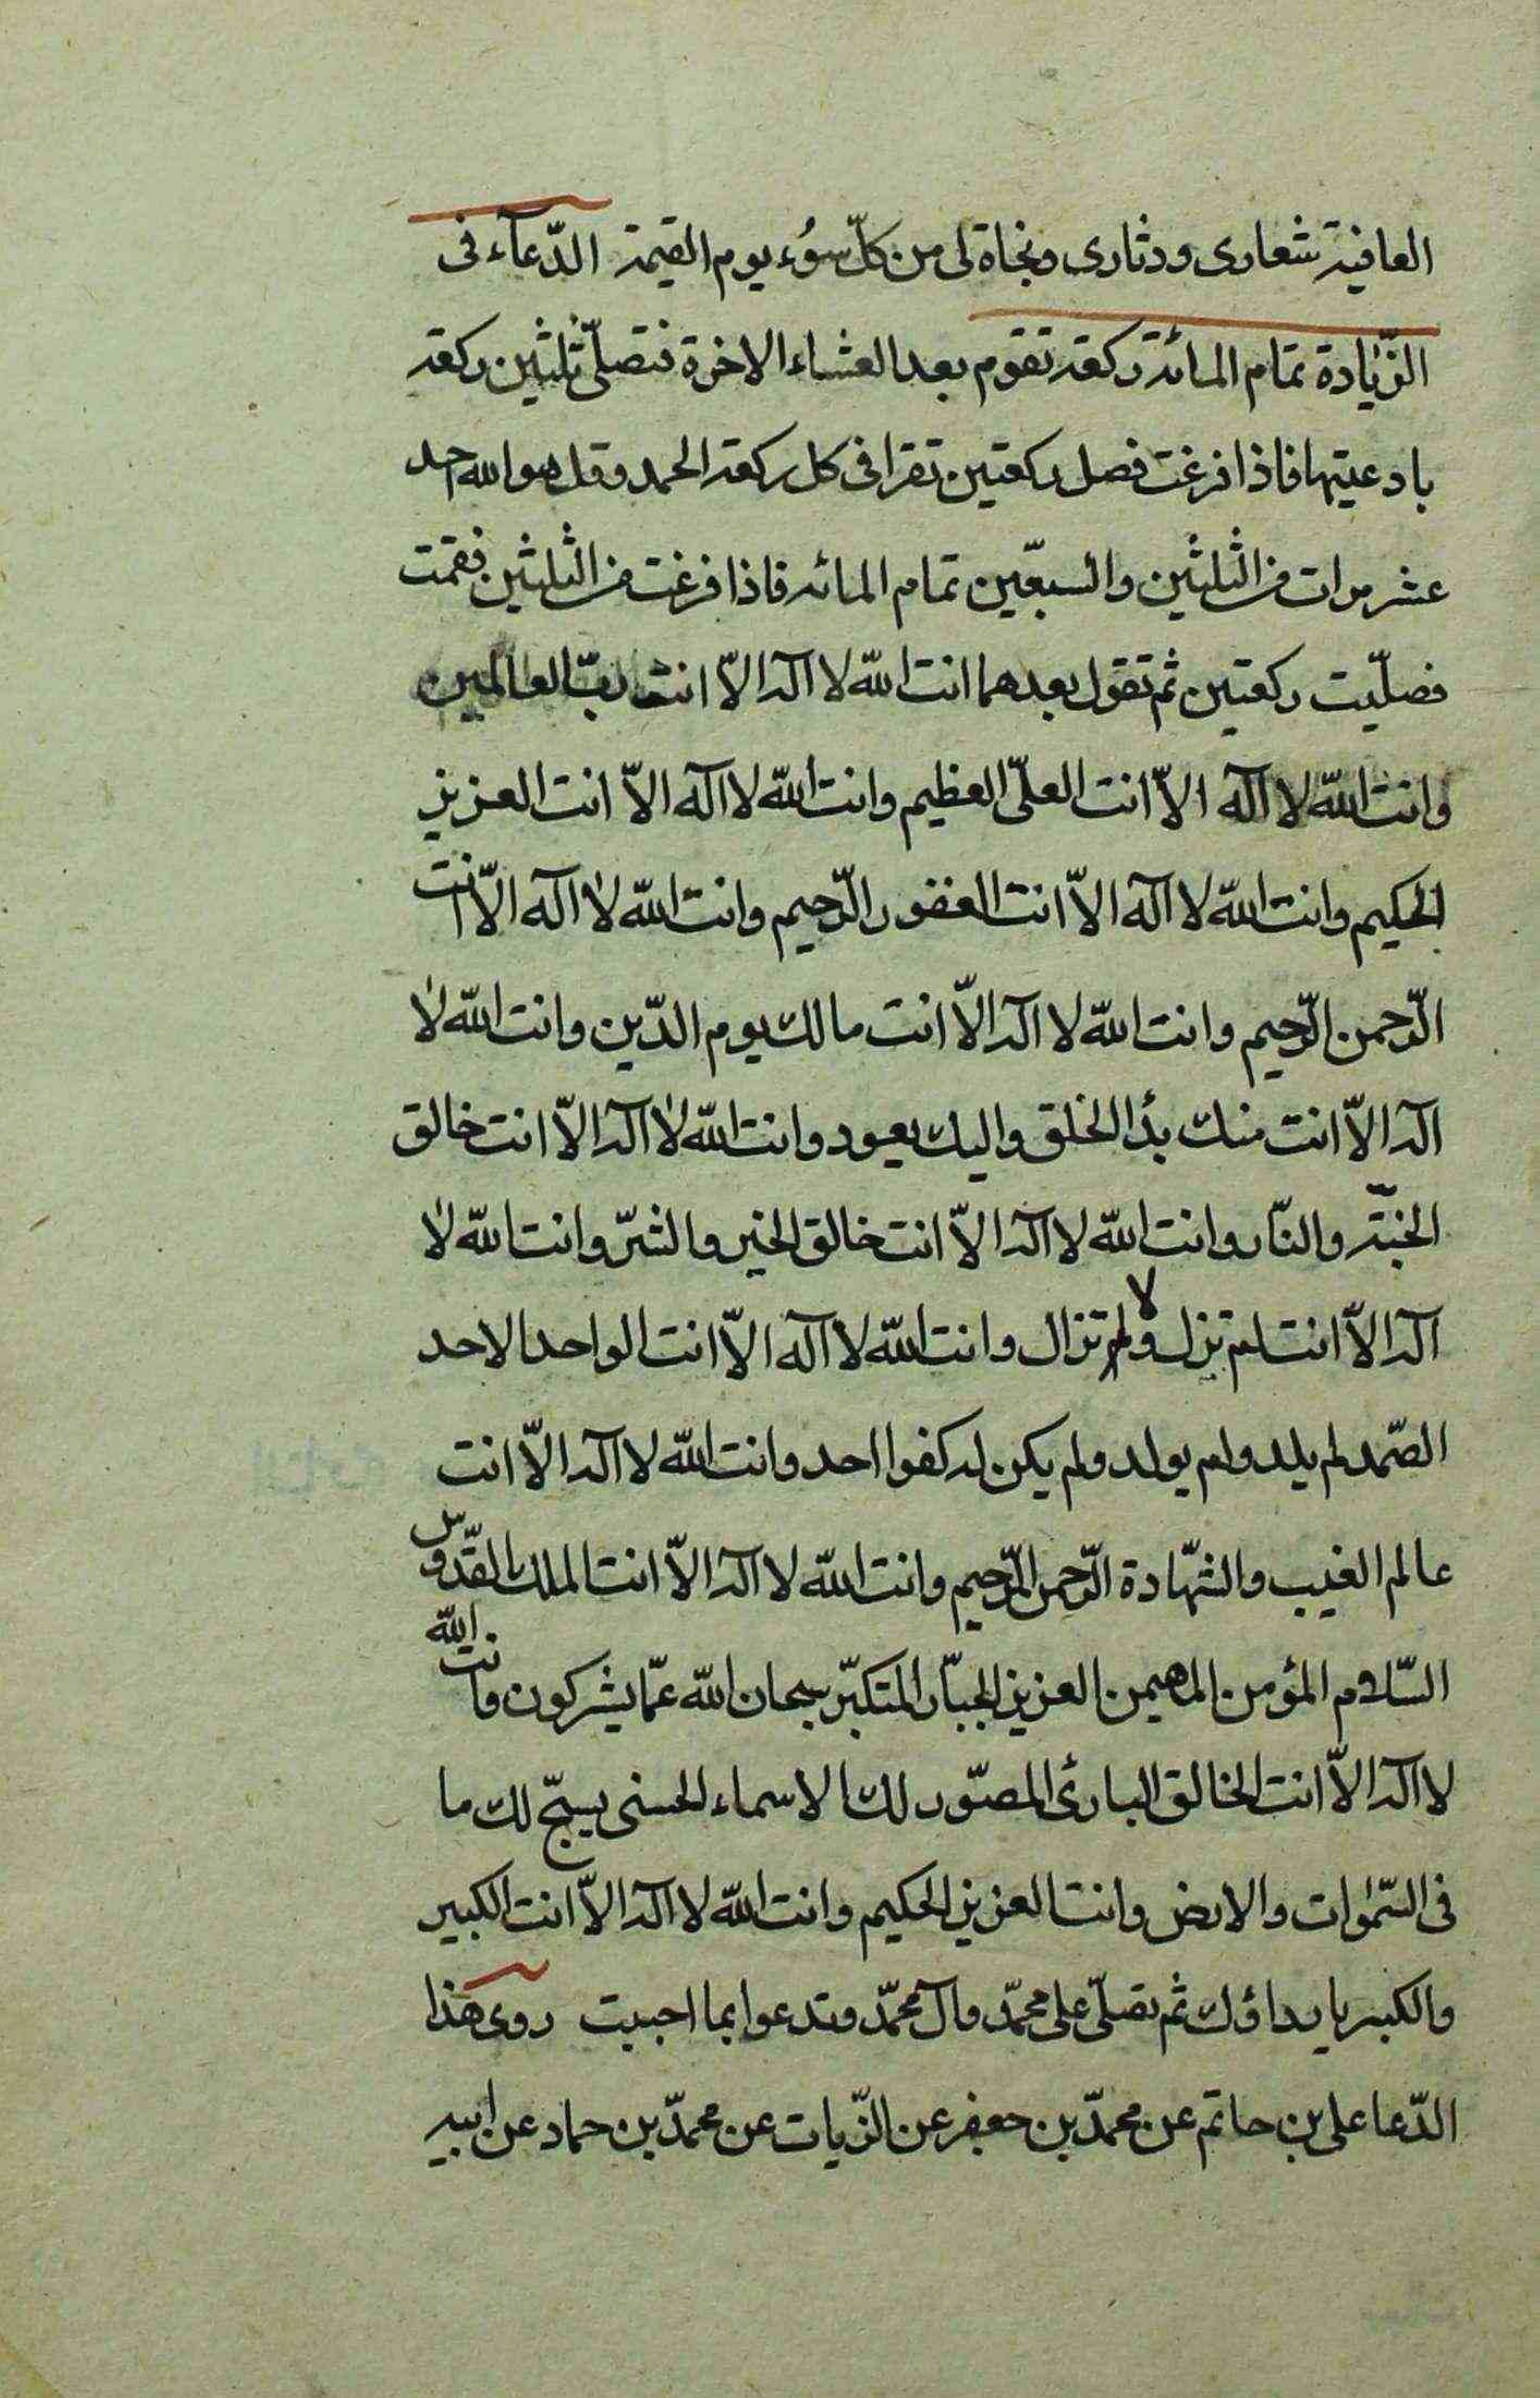 العافية شعارى ودثارى ونجاة لى من كلّ سُوء يوم القيمة الدّعآء فى
الزّيادة تمام المائة ركعة تقوم بعد العشاء الاخرة فتصلّى ثلثين ركعة
بادعيتها فاذا فرغت فصل ركعتين تقرا فى كل ركعة الحمد وقل هو الله احد
عشر مرات من الثلثين والسبعّين تمام المائه فاذا فرغت من الثلثين فقمت
فصلّيت ركعتين ثم تقول بعدهما انت الله لا اله الاّ انت ربّ العالمين
وانت الله لا اله الاّ انت العلىّ العظيم وانت الله لا اله الاّ انت العزيز
الحكيم وانت الله لا اله الاّ انت الغفور الرّحيم وانت الله لا اله الاّ انت
الرّحمن الرّحيم وانت الله لا اله الاّ انت مالك يوم الدّين وانت الله لا
اله الاّ انت منك بدأ الخلق واليك يعود وانت الله لا اله الاّ انت خالق
الجنّة والنّار وانت الله لا اله الاّ انت خالق الخير والشرّ وانت الله لا
اله الاّ انت لم تزل ولا تزال وانت الله لا اله الاّ انت الواحد الاحد
الصّمد لم يلد ولم يولد ولم يكن له كفوا احد وانت الله لا اله الاّ انت
عالم الغيب والشهّادة الرّحمن الرّحيم وانت الله لا اله الاّ انت الملك القدّوس
السّلام المؤمن المهيمن العزيز الجبّار المتكبّر سبحان الله عمّا يشركون وانت الله
لا اله الاّ انت الخالق البارئ المصوّر لك الاسماء الحسنى يسبّح لك ما
فى السّموات والارض وانت العزيز الحكيم وانت الله لا اله الاّ انت الكبير
والكبرياء رداؤك ثم تصلّى على محمّد وآل محمّد وتدعوا بما احببت روى هذا
الدّعا على بن حاتم عن محمّد بن جعفر عن الزّيات عن محمّد بن حماد عن ابيه